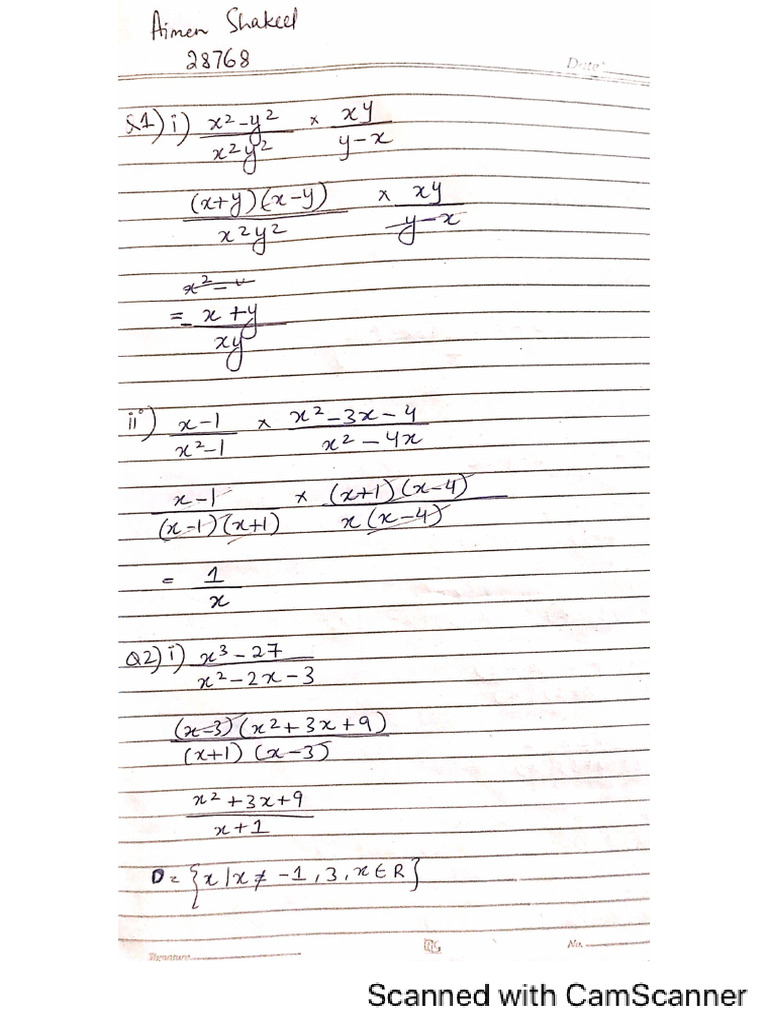 Aimen Shakeel
28768
Date:
Q1) i) x²-y² / x²y² × xy / y-x
(x+y)(x-y) / x²y² × xy / y-x
x² -
= - x+y / xy
ii) x-1 / x²-1 × x²-3x-4 / x²-4x
x-1 / (x-1)(x+1) × (x+1)(x-4) / x(x-4)
= 1 / x
Q2) i) x³-27 / x²-2x-3
(x-3)(x²+3x+9) / (x+1)(x-3)
x²+3x+9 / x+1
D = {x | x ≠ -1, 3, x ∈ R}
Signature No.
Scanned with CamScanner